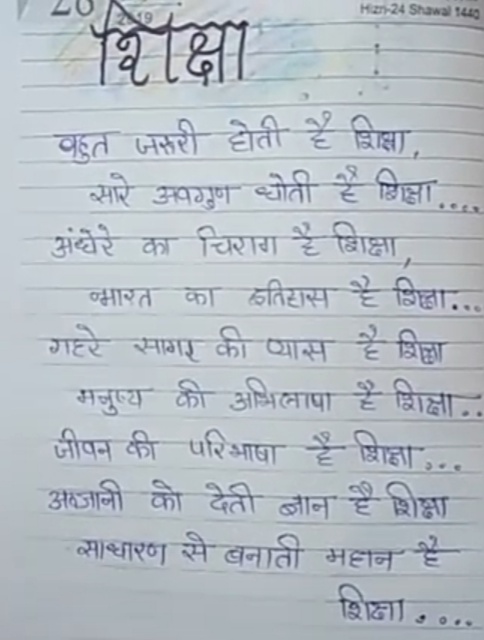 20
2019
Hizri-24 Shawal 1440
शिक्षा
बहुत जरुरी होती है शिक्षा,
सारे अवगुण धोती है शिक्षा....
अंधेरे का चिराग है शिक्षा,
भारत का इतिहास है शिक्षा...
गहरे सागर की प्यास है शिक्षा
मनुष्य की अभिलाषा है शिक्षा..
जीवन की परिभाषा है शिक्षा...
अज्ञानी को देती ज्ञान है शिक्षा
साधारण से बनाती महान है
शिक्षा....